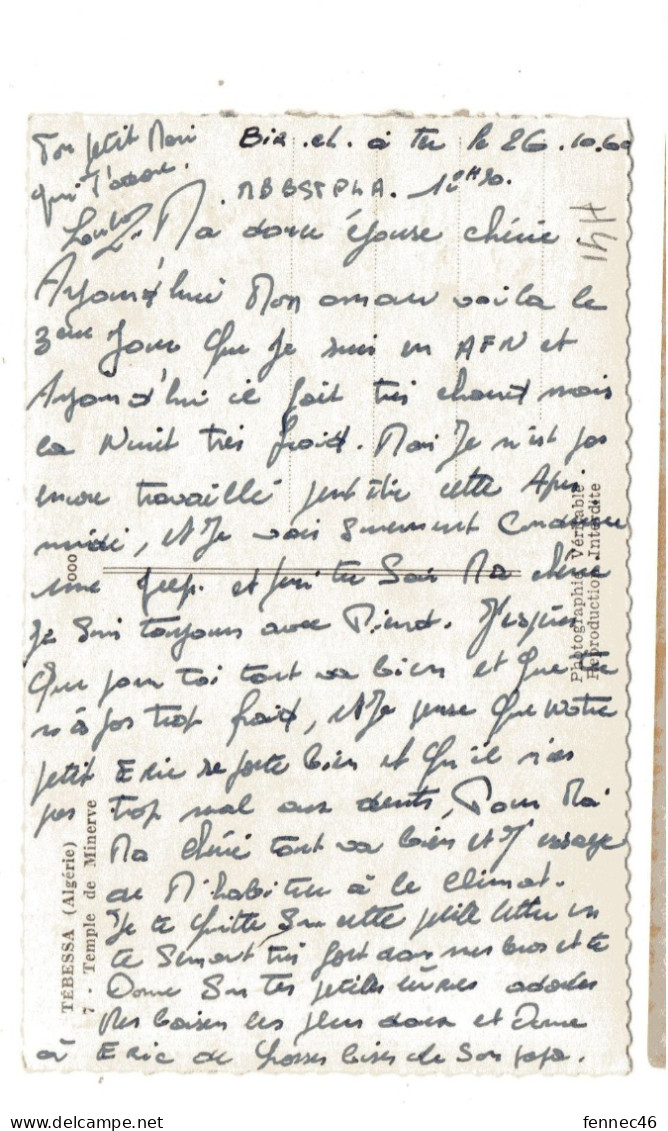 Ton petit Mari
qui t'adore.
Bir.el.a ter le 26.10.60
12H30.
Ma douce épouse chérie.
Aujourd'hui Mon amour voila le
3ème Jour Que Je suis en AFN et
Aujourd'hui il fait très chaud mais
la Nuit très froid. Mais Je n'est pas
encore travaillé peut être cette Après
midi, et Je vais surement Conduire
une jeep. et puis tu Sais Ma chérie
Je Suis toujours avec J'espère
Que pour toi tout va bien et Que tu
n'à pas trop froid, et Je pense Que notre
petit Eric se porte bien et Qu'il n'as
pas trop mal aux dents, Pour Moi
Ma chérie tout va bien et J'essaye
de M'habituer à le climat.
Je te Quitte Sur cette petite lettre en
te Serrant très fort dans mes bras et te
Donne Sur Tes petites lèvres adorées
Mes baisers les plus doux et donne
à Eric de Grosses bises de Son papa.
141
TÉBESSA (Algérie)
7 - Temple de Minerve
Photographie Véritable.
Reproduction Interdite
fennec46